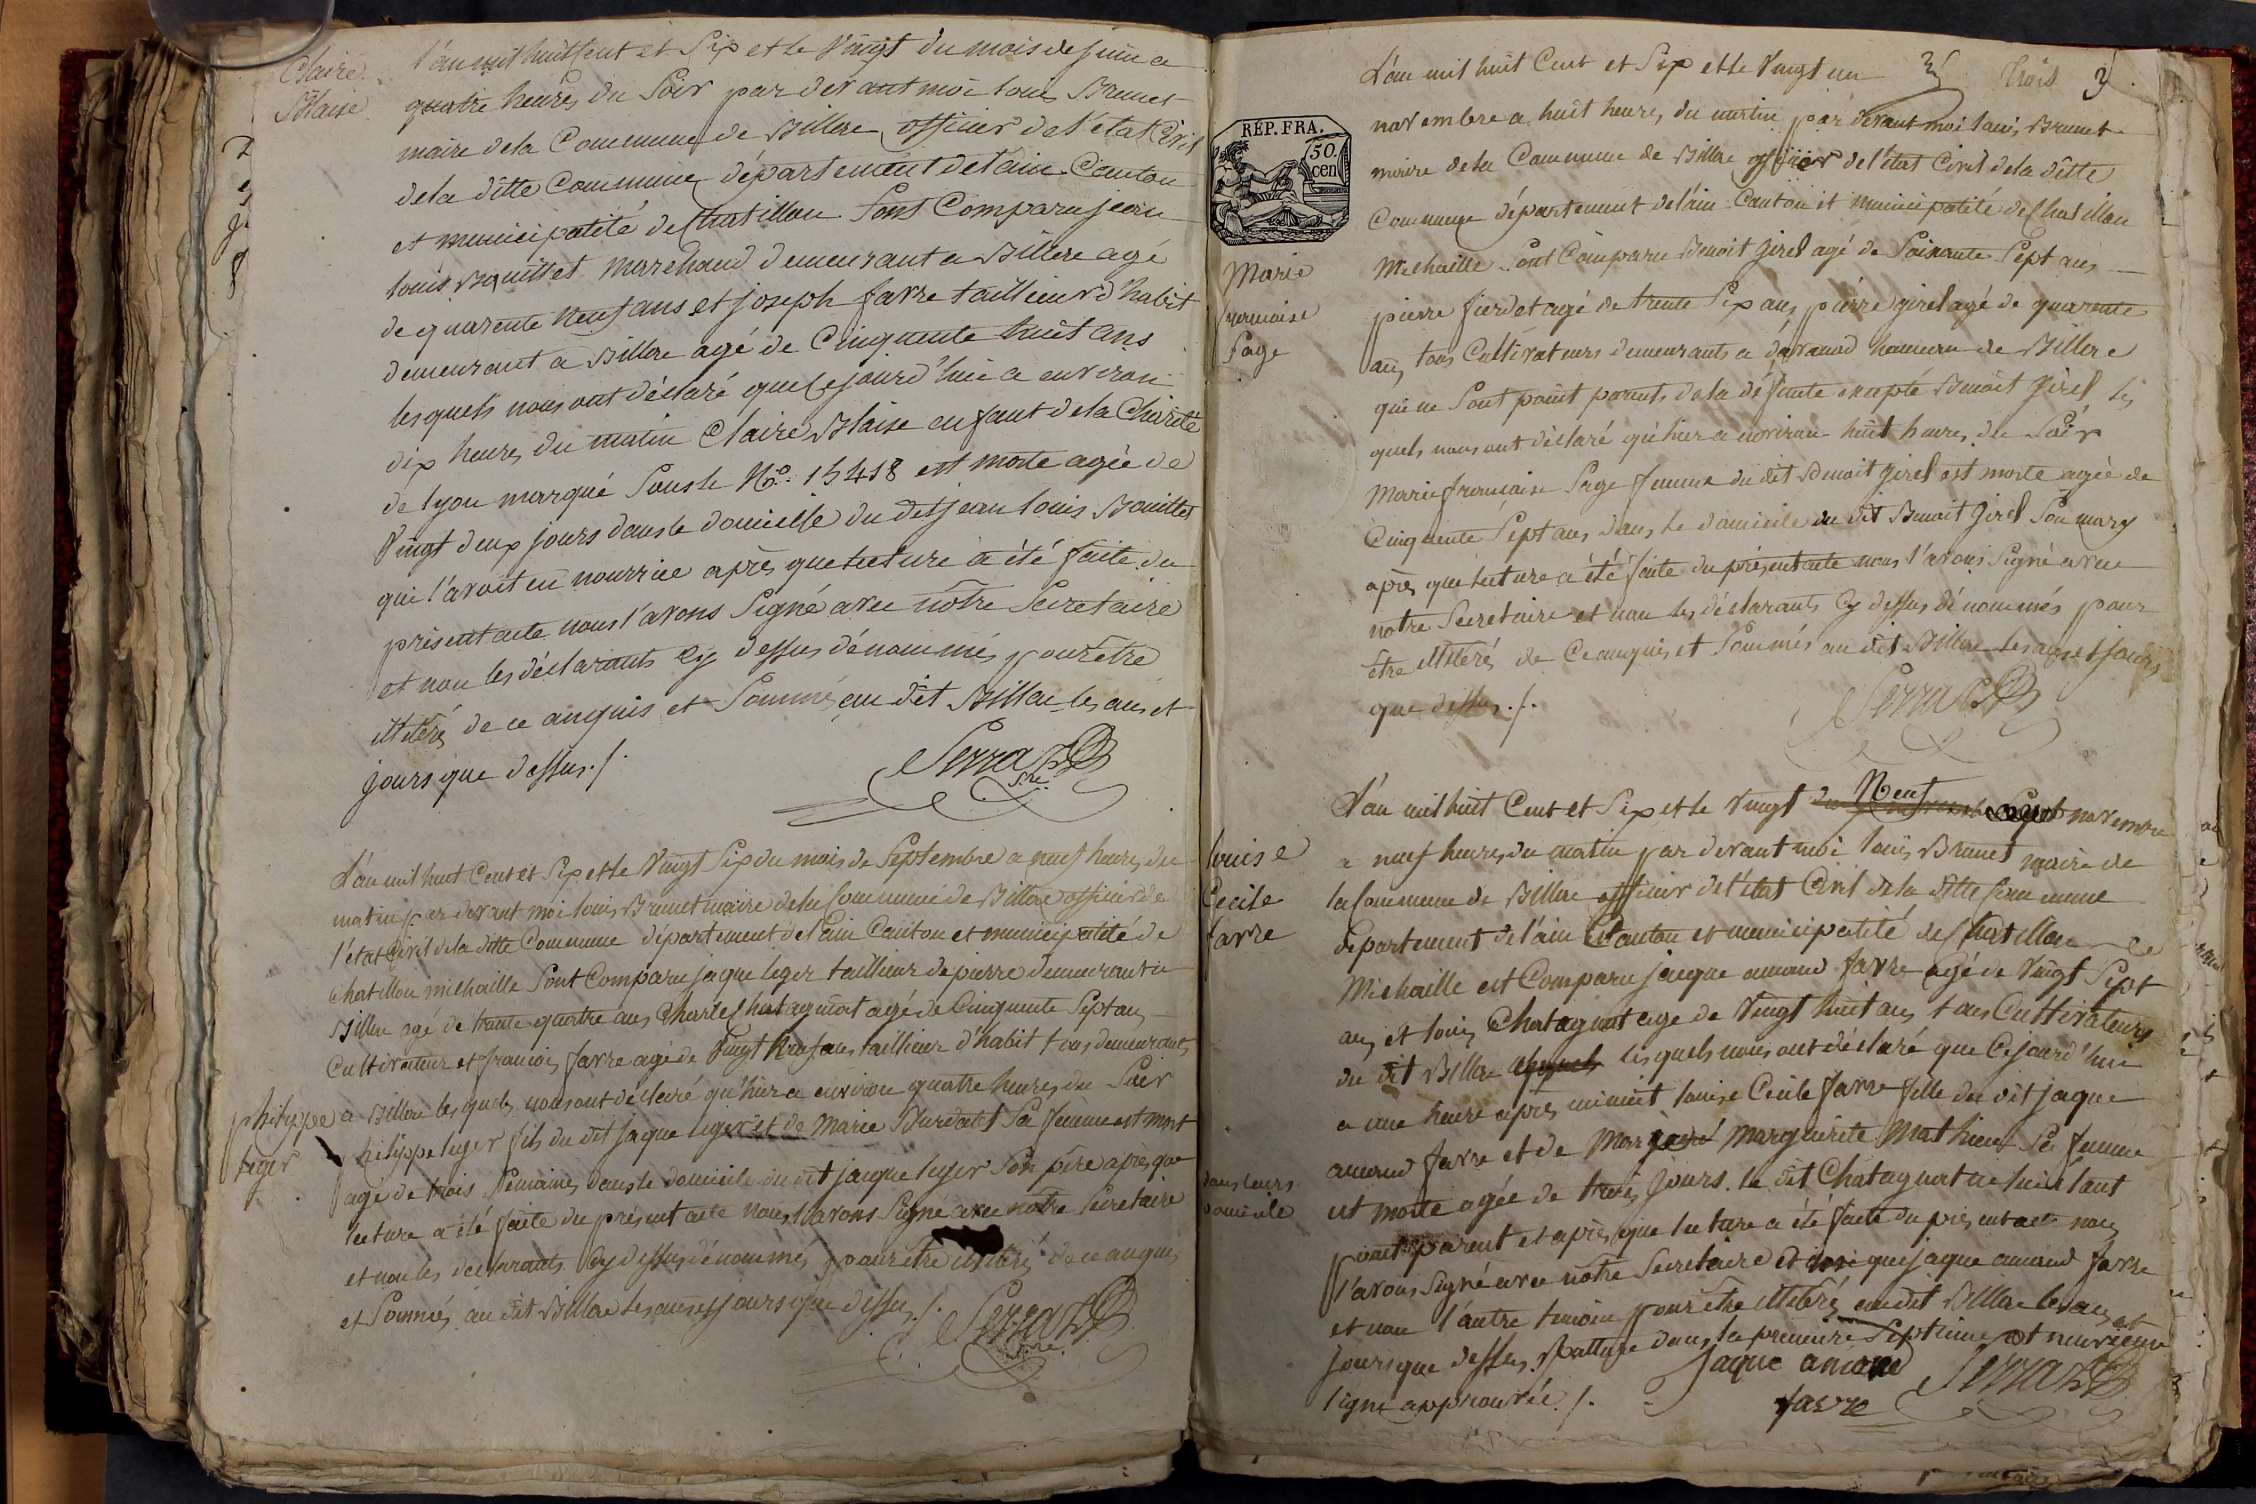 Claire
Blaise
L'an mil huit Cent et Six et le Vingt du mois de Juin a
quatre heures du Soir par devant moi louis Brunet
maire dela Commune de Billiae officier de l'etat Civil
dela dîtte Commune département del'ain Canton
et municipalité de Chatillon Sont Comparu jean
louis Bouillet marchand demeurant a Billiae agé
de quarente neuf ans et joseph favre taillieur d'habit
demeurant a Billiae agé de Cinquente huit ans
lesquels nous ont déclaré que Cejourd'hui a environ
dix heures du matin Claire Blaise enfant dela Charité
de lyon marqué Sous le No. 15418 est morte agée de
Vingt deux jours dans le domicille du dit jean louis Bouillet
qui l'avoit en nourrice après que lecture a été faite du
présent acte nous l'avons Signé avec nôtre Secretaire
et non les déclarants Cy dessus dénommés pour être
illiterés de ce anquis et Sommés au dit Billiae les ans et
jours que dessus ./.
Serra
S.re
L'an mil huit Cent et Six et le Vingt Six du mois de Septembre a neuf heures du
matin par devant moi louis Brunet maire dela Commune de Billiae officier de
l'état Civil dela ditte Commune département del'ain Canton et municipalité de
Chatillon michaille Sont Comparu jaque leger tailleur de pierre demeurant a
Billiae agé de trante quatre ans Charle Chatagnat agé de Cinquente Sept ans
Cultivateur et francois favre agé de Vingt Neuf ans taillieur d'habit tous demeurants
a Billiae lesquels nous ont déclaré qu'hier a environ quatre heures du Soir
philyppe
leger
hilippe leger fils du dit jaque leger et de Marie Burdallet Sa femme est mort
agé de trois Semaines dans le domicile du dit jaque leger Son père après que
lecture a été faite du présent acte nous l'avons Signé avec nôtre Secretaire
et non les déclarants Cy dessus dénommés pour être illiterés de ce anquis
et Sommés au dit Billiae les ans et jours que dessus ./.
Serra
S.re
trois 3
RÉP. FRA.
50.
cen.
L'an mil huit Cent et Six et le Vingt un
novembre a huit heures du matin par devant moi louis Brunet
maire dela Commune de Billiae officier de l'état Civil dela dîtte
Commune département del'ain Canton et municipalité de Chatillon
Marie
francoise
Sage
Michaille Sont Comparu Benoit Girel agé de Soixante Sept ans
pierre fierdet agé de trente Six ans pierre girel agé de quarente
ans tous Cultivateurs demeurants a davanod hameau de Billiae
qui ne Sont point parents dela défunte excepté Benoit Girel les
quels nous ont déclaré qu'hier a environ huit heures du Soir
Marie francoise Sage femme du dit Benoit Girel est morte agée de
Cinquente Sept ans dans le domicile du dit Benoit Girel Son mary
après que lecture a été faite du présent acte nous l'avons Signé avec
notre Secretaire et non les déclarants Cy dessus dénommés pour
être illiterés de Ce anquis et Sommés au dit Billiae les ans et jours
que dessus ./.
Serra
L'an mil huit Cent et Six et le Vingt Neuf novembre
louise
Cecile
favre
a neuf heures du matin par devant moi louis Brunet maire de
la Commune de Billiae officier de l'état Civil dela ditte Commune
departement del'ain Canton et municipalité de Chatillon de
Michaille est Comparu jaque amand favre agé de Vingt Sept
ans et louis Chatagnat age de Vingt huit ans tous Cultivateurs
du dit Billiae lesquels nous ont déclaré que Cejourd'hui
a une heure après minuit louise Cecile favre fille du dit jaque
amand favre et de Marguerite Mathieu Sa femme
dans leurs
domicile
est morte agée de trois jours. le dit Chatagnat ne lui étant
point parent et après que lecture a été faite du présent acte nous
l'avons Signé avec nôtre Secretaire et que jaque amand favre
et non l'autre temoin pour être illiterés au dit Billiae les ans et
jours que dessus Rature dans la premiere Septieme et neuvieme
ligne approuvée ./.
jaque amand
favre
Serra